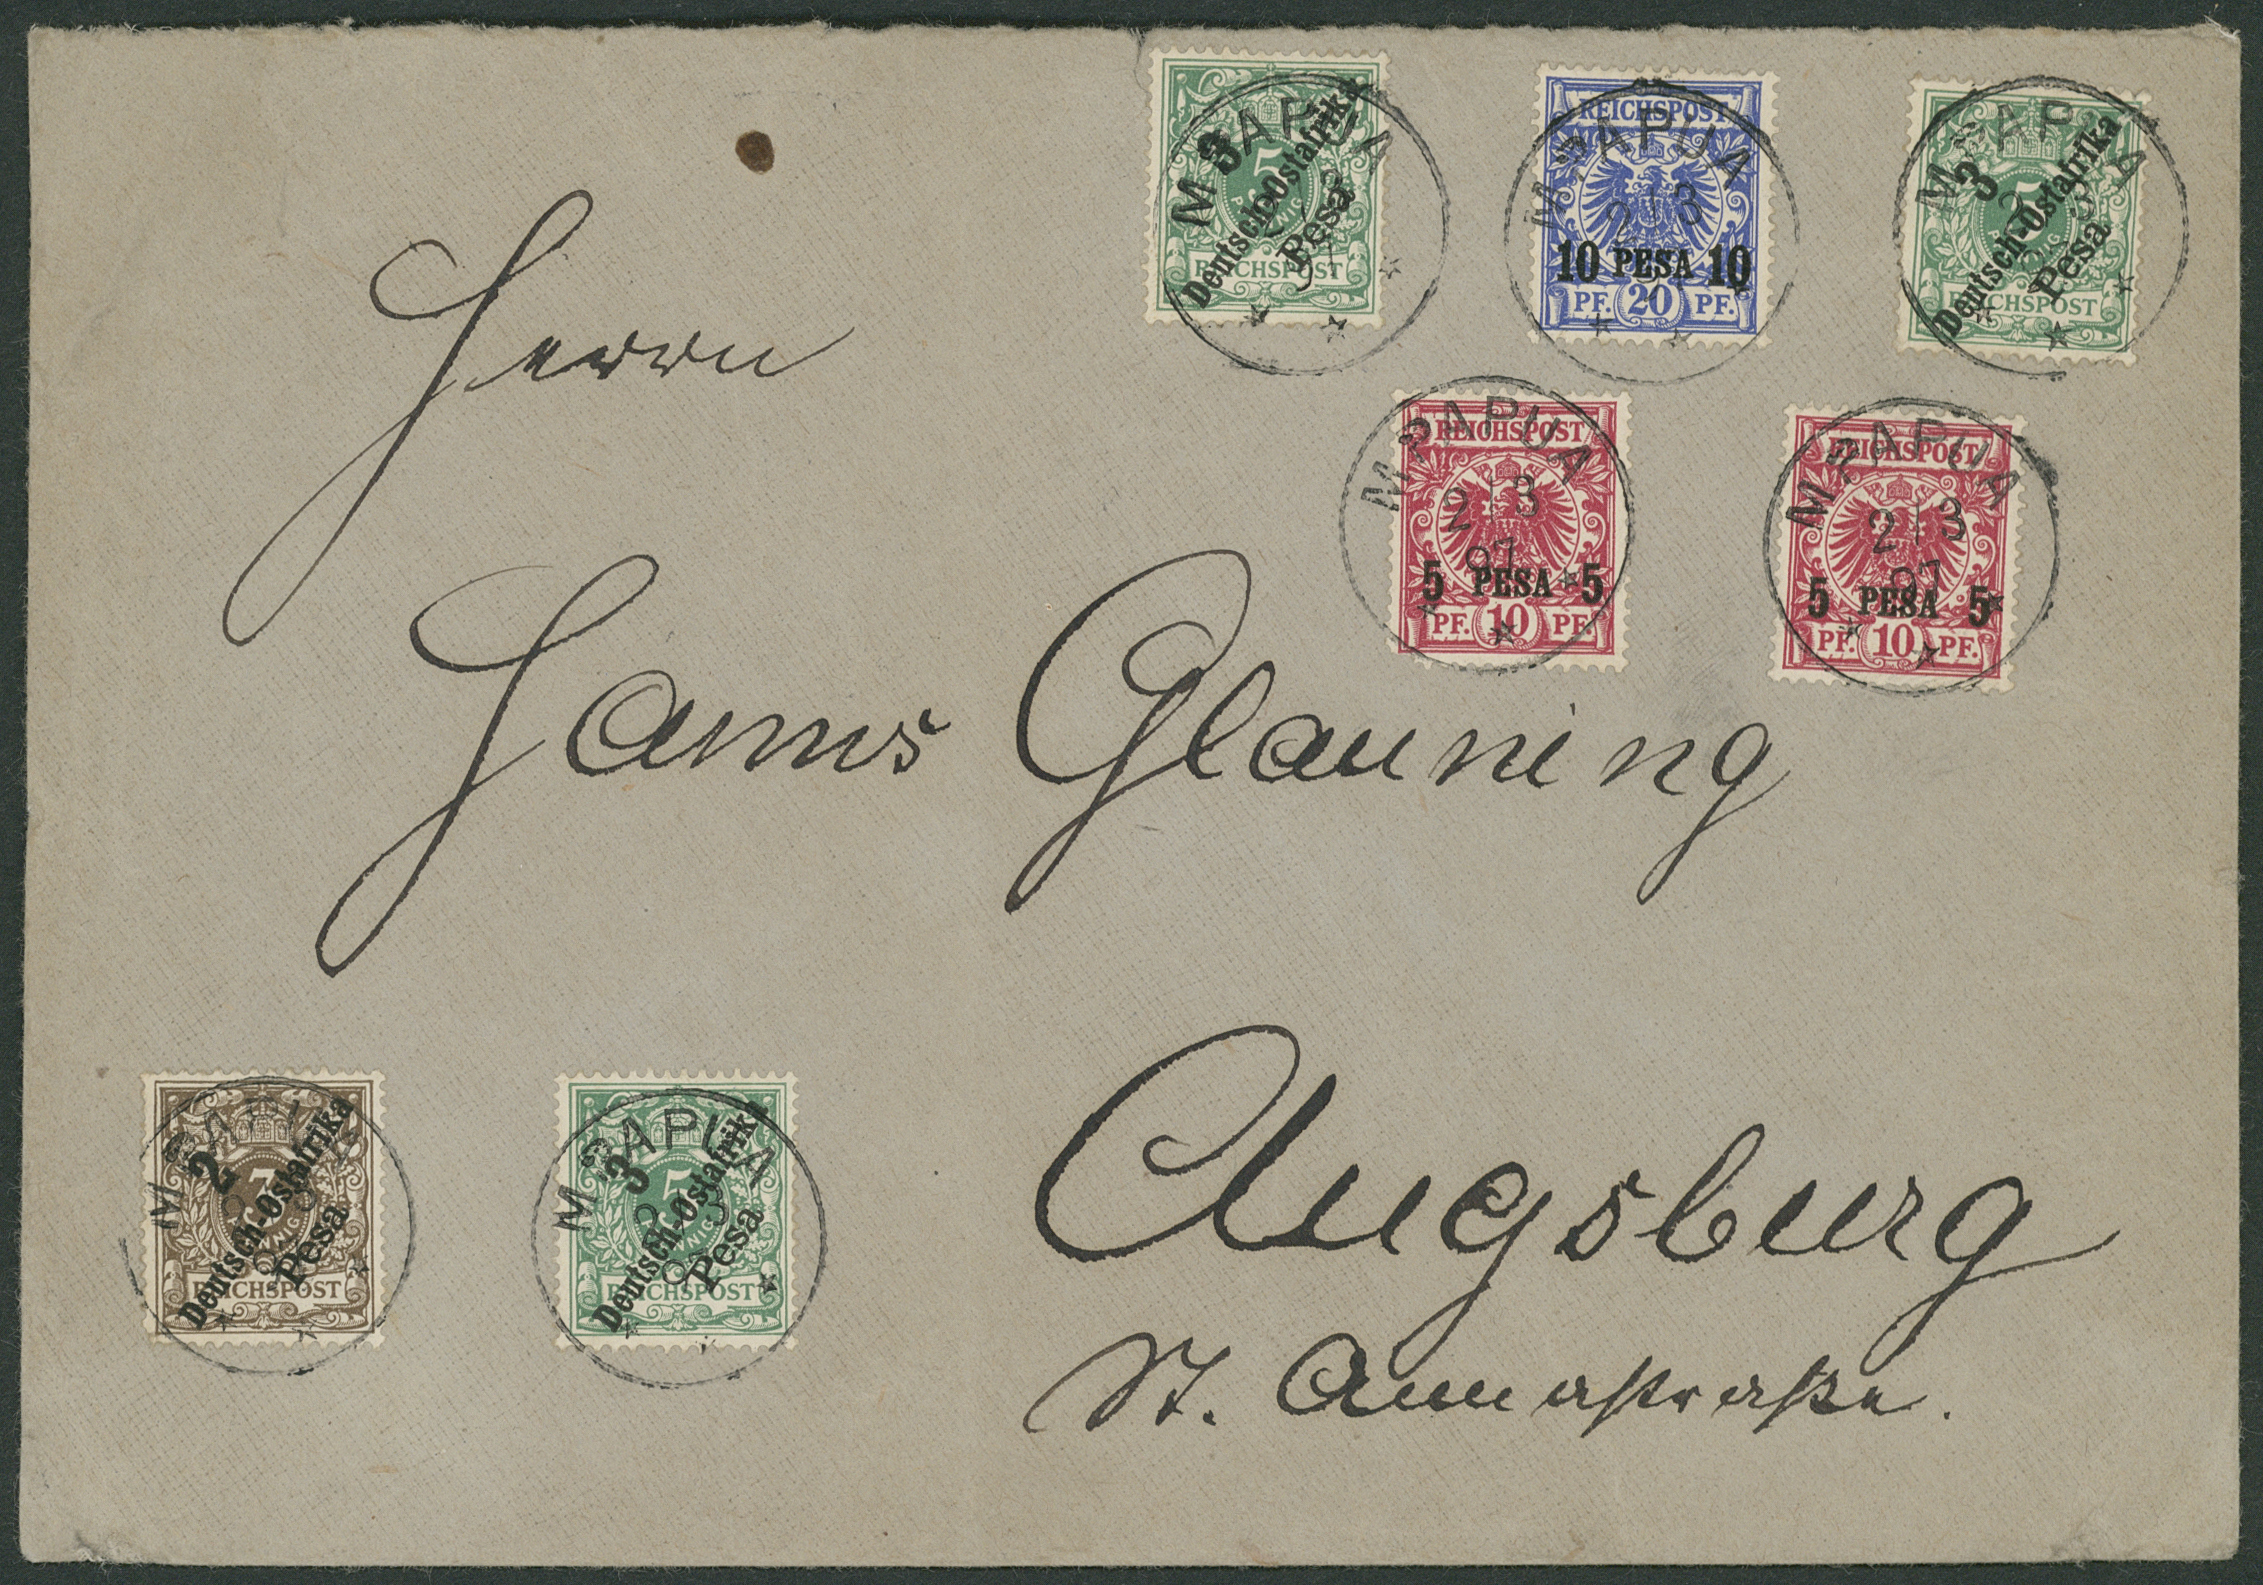 3
Deutsch-Ostafrika
Pesa
5
PFENNIG
REICHSPOST
MPAPUA
REICHSPOST
10 PESA 10
PF. 20 PF.
MPAPUA
2 3
97
3
Deutsch-Ostafrika
Pesa
5
PFENNIG
REICHSPOST
MPAPUA
REICHSPOST
5 PESA 5
PF. 10 PF.
MPAPUA
2 3
97
REICHSPOST
5 PESA 5
PF. 10 PF.
MPAPUA
2 3
97
Herrn
Hanns Glauning
Augsburg
St. Annastraße.
2
Deutsch-Ostafrika
Pesa
3
PFENNIG
REICHSPOST
MPAPUA
3
Deutsch-Ostafrika
Pesa
5
PFENNIG
REICHSPOST
MPAPUA